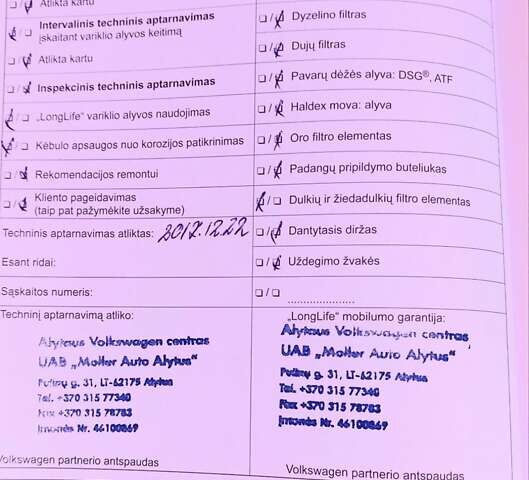 Atlikta kartu
Intervalinis techninis aptarnavimas
įskaitant variklio alyvos keitimą
Atlikta kartu
Inspekcinis techninis aptarnavimas
„LongLife“ variklio alyvos naudojimas
Kėbulo apsaugos nuo korozijos patikrinimas
Rekomendacijos remontui
Kliento pageidavimas
(taip pat pažymėkite užsakyme)
Techninis aptarnavimas atliktas: 2017.12.22
Esant ridai:
Sąskaitos numeris:
Techninį aptarnavimą atliko:
Alytaus Volkswagen centras
UAB „Moller Auto Alytus“
Pušynų g. 31, LT-62175 Alytus
Tel. +370 315 77340
Fax +370 315 78783
Įmonės Nr. 46100869
Volkswagen partnerio antspaudas
Dyzelino filtras
Dujų filtras
Pavarų dėžės alyva: DSG®, ATF
Haldex mova: alyva
Oro filtro elementas
Padangų pripildymo buteliukas
Dulkių ir žiedadulkių filtro elementas
Dantytasis diržas
Uždegimo žvakės
„LongLife“ mobilumo garantija:
Alytaus Volkswagen centras
UAB „Moller Auto Alytus“
Pušynų g. 31, LT-62175 Alytus
Tel. +370 315 77340
Fax +370 315 78783
Įmonės Nr. 46100869
Volkswagen partnerio antspaudas